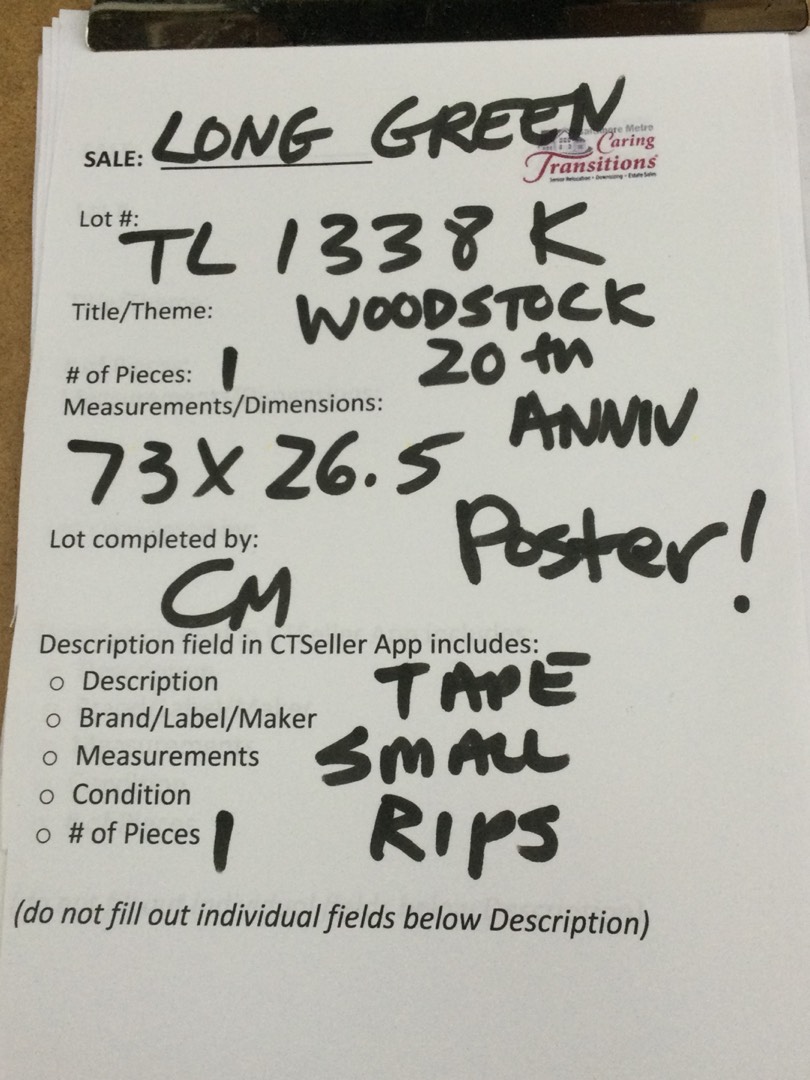 SALE: LONG GREEN
Baltimore Metro
Caring
Transitions
Senior Relocation • Downsizing • Estate Sales
Lot #: TL 1338 K
Title/Theme: WOODSTOCK
20th
# of Pieces: 1
Measurements/Dimensions: ANNIV
73 X 26.5
Poster!
Lot completed by:
CM
Description field in CTSeller App includes:
o Description TAPE
o Brand/Label/Maker
o Measurements SMALL
o Condition
o # of Pieces 1 RIPS
(do not fill out individual fields below Description)